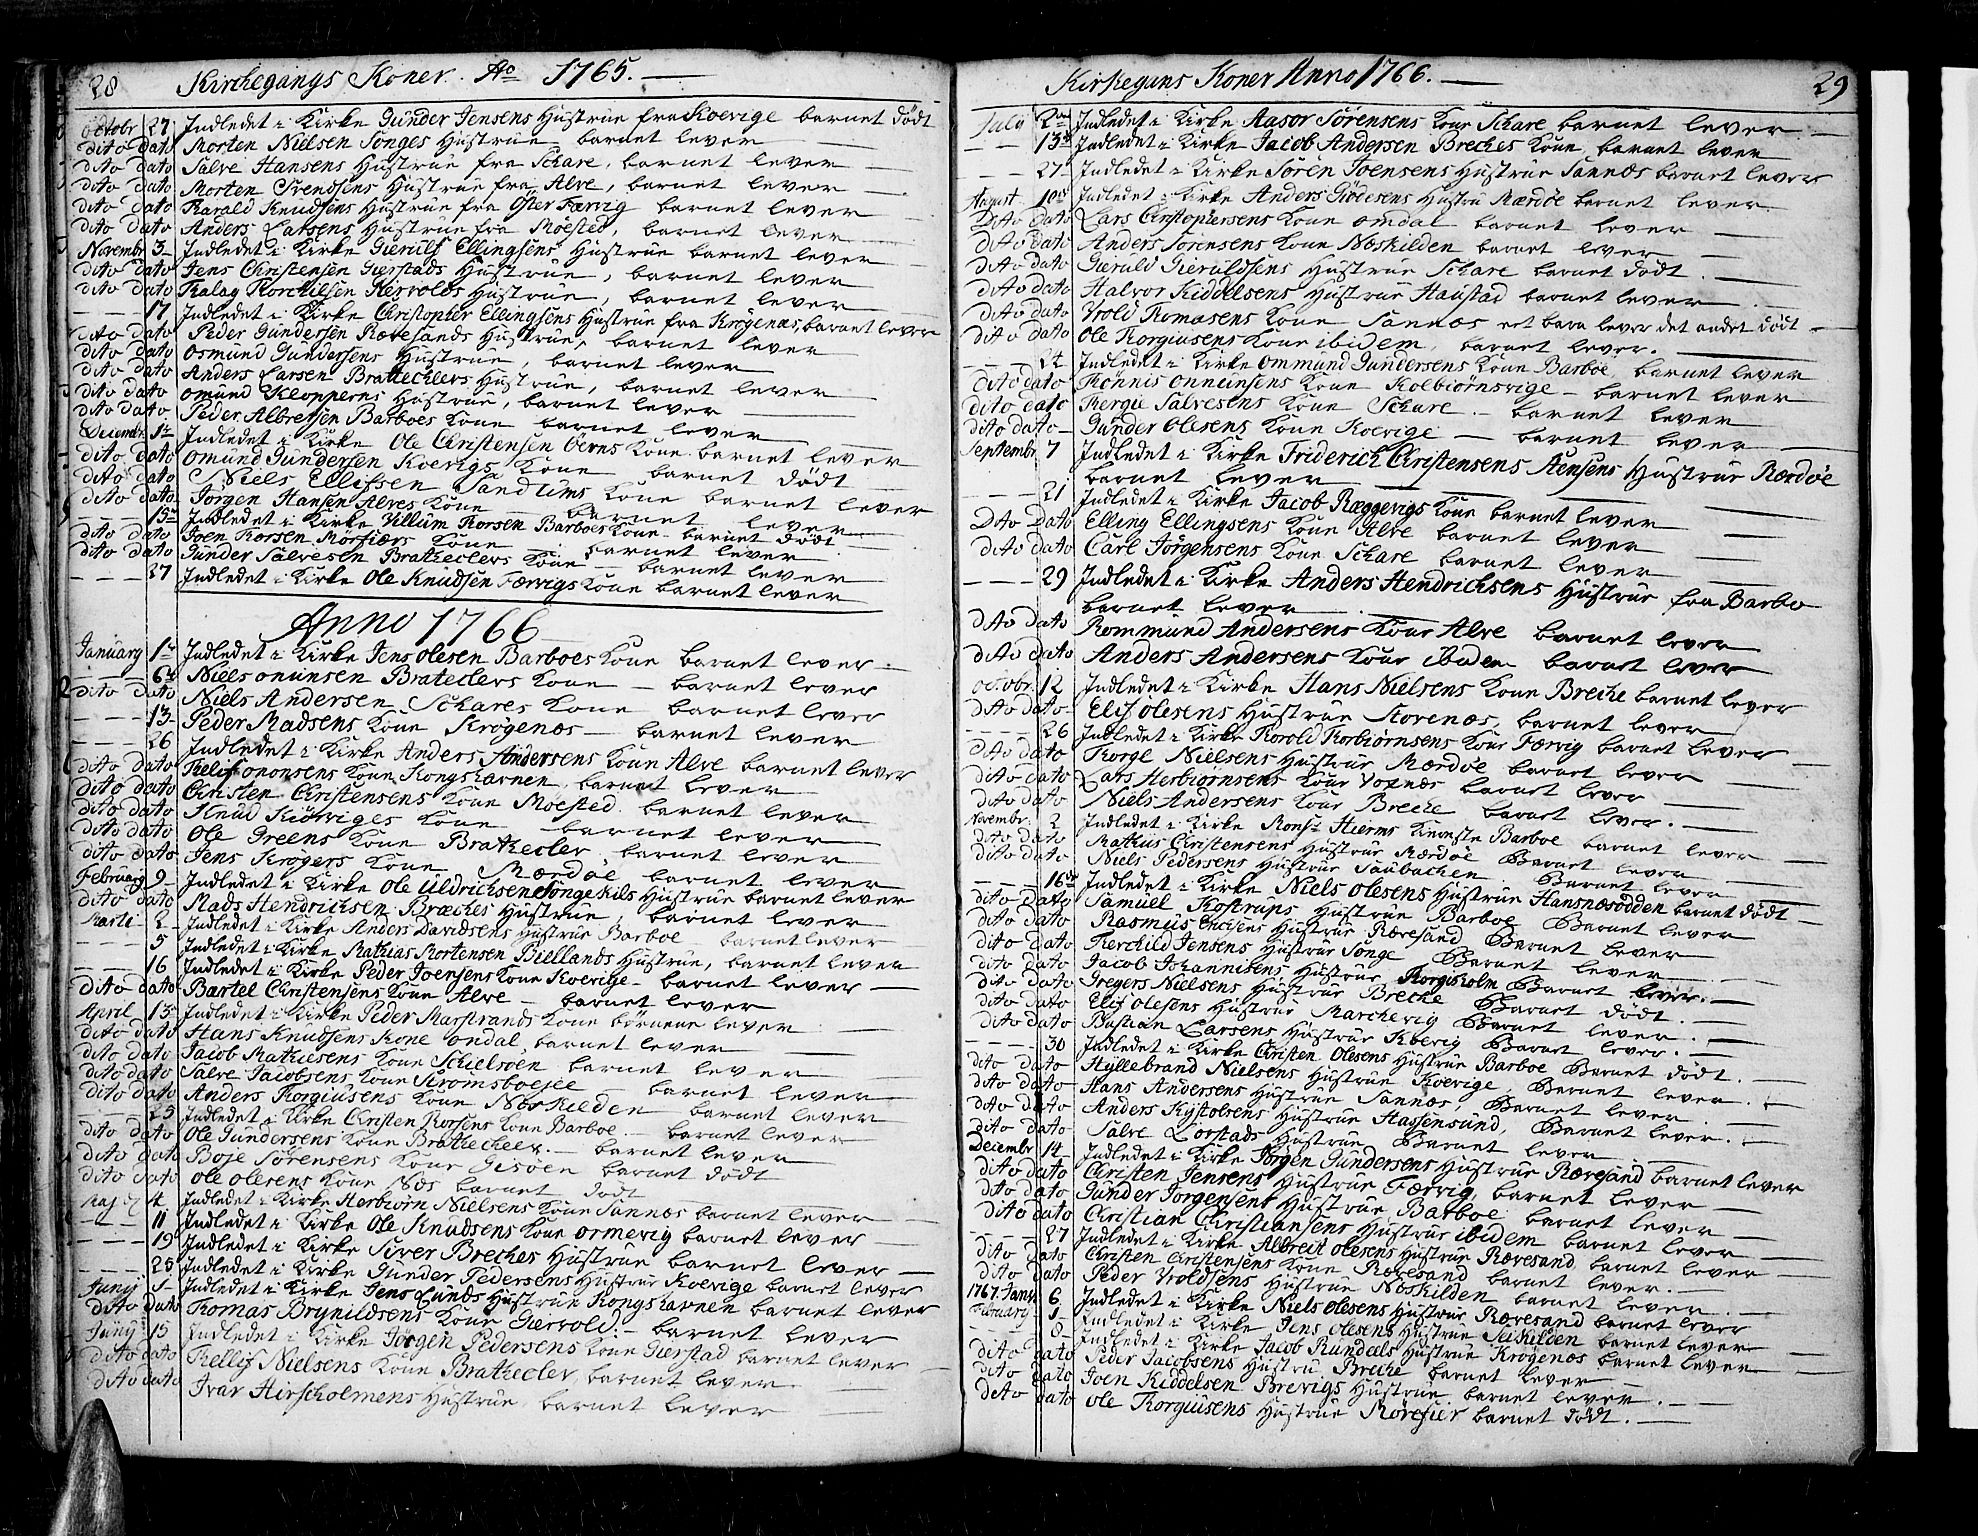 28 Kirchegangs Koner. Ao 1765.
Octobr 27 Indledet i Kirke Gunder Jensens Hustrue fra Koevige barnet dödt
dito dato Morten Nielsen Songes Hustrue barnet lever
dito dato Salve Hansens Hustrue fra Schare, barnet lever
dito dato Morten Svendsens Hustrue fra Alve, barnet lever
dito dato Harald Knudsens Hustrue fra Öster Færvig barnet lever
dito dato Anders Larsens Hustrue fra Moested, barnet lever
Novembr 3 Indledet i Kirke Gierulf Ellingsens Hustrue barnet lever
dito dato Jens Christensen Gierstads Hustrue, barnet lever
dito dato Hustrue, barnet lever
17 Indledet i Kirke Christopher Ellingsens Hustrue fra Krögenæs, barnet lever
dito dato Peder Gundersen Rævesands Hustrue, barnet lever
dito dato Osmund Gundersens Hustrue, barnet lever
dito dato Anders Larsen Brattecklevs Hustrue, barnet lever
dito dato Omund Kloppernes Hustrue, barnet lever
dito dato Peder Albretsen Barboes Kone barnet lever
Decembr 1te Indledet i Kirke Ole Christensen Öerns Kone barnet lever
dito dato Omund Gundersen Koevigs Kone barnet dödt
dito dato Niels Ellifsen Sandums Kone barnet lever
dito dato Jörgen Hansen Alves Kone barnet lever
15de Indledet i Kirke Villum Torsen Barboes Kone barnet dödt
dito dato Joen Torsen Morfiærs Kone barnet lever
dito dato Gunder Salvesen Brateclevs Kone barnet lever
27 Indledet i Kirke Ole Knudsen Færvigs Kone barnet lever
Anno 1766
January 1te Indledet i Kirke Jens Olesen Barboes Kone barnet lever
6te Niels Onunsen Brateclevs Kone barnet lever
dito dato Niels Andersen Schares Kone barnet lever
13 Peder Madsens Kone Krögenæs barnet lever
26 Indledet i Kirke Anders Andersens Kone Alve barnet lever
dito dato Tellef Ononsens Kone Kongshavnen, barnet lever
dito dato Christen Christensens Kone Moested barnet lever
dito dato Knud Kiörviges Kone barnet lever
dito dato Ole Greens Kone Brateclev, barnet lever
dito dato Jens Krogers Kone Mærdöe barnet lever
February 9 Indledet i Kirke Ole Uldrichsen Songekils Hustrue barnet lever
dito dato Mads Hendrichsen Bræches Hustrue, barnet lever
Marti 2 Indledet i Kirke Anders Davidsens Hustrue Barboe barnet lever
5 Indledet i Kirke Mathias Mortensen Biellands Hustrue, barnet lever
16 Indledet i Kirke Peder Joensens Kone Koevige barnet lever
dito dato Bærtel Christensens Kone Alve barnet lever
April 13 Indledet i Kirke Peder Marstrands Kone börnene lever
dito dato Hans Knudsens Kone Omdal, barnet lever
dito dato Jacob Mathiesens Kone Schielsöen barnet lever
dito dato Salve Jacobsens Kone Strömsboesee barnet lever
dito dato Anders Torgiusens Kone Næskilden barnet lever
25 Indledet i Kirke Christen Torsens Kone Barboe barnet lever
dito dato Ole Gundersens Kone Brathecleev barnet lever
dito dato Boje Sörensens Kone Gisöen barnet dödt
dito dato Ole Olesens Kone Næs barnet dödt
Maj 4 Indledet i Kirke Herbiörn Nielsens Kone Sannæs barnet lever
11 Indledet i Kirke Ole Knudsens Kone Ormevig barnet lever
19 Indledet i Kirke Siver Breches Hustrue barnet lever
25 Indledet i Kirke Gunder Pedersens Hustrue Koevige barnet lever
Junij 1 Indledet i Kirke Jens Lunds Hustrue Kongshavnen barnet lever
dito dato Tomas Brynildsens Kone Giervold barnet lever
Junij 15 Indledet i Kirke Jörgen Pedersens Kone Gierstad barnet lever
dito dato Tellif Nielsens Kone Brateclev, barnet lever
dito dato Ivar Hirscholmens Hustrue, barnet lever
Kirkegans Koner Anno 1766. 29
July 2den Indledet i Kirke Aasor Sörensens Kone Schare barnet lever
13de Indledet i Kirke Jacob Andersen Breches Kone, barnet lever
27 Indledet i Kirke Sören Joensens Hustrue Sannæs barnet lever
August 10de Indledet i Kirke Anders Hustru Mærdöe barnet lever
Dito dato Lars Christophersens Kone Omdal barnet lever
dito dato Anders Sörensens Kone Næskilden barnet lever
dito dato Gieruld Gieruldsens Hustrue Schare barnet dödt
dito dato Halvor Kiddelsens Hustrue Haustad barnet lever
dito dato Vrold Tomasens Kone Sannæs eet barn lever det andet dödt
dito dato Ole Torgiusens Kone ibidem, barnet lever.
24 Indledet i Kirke Ommund Gundersens Kone Barboe, barnet lever
dito dato Tönnis Onneunsens Kone Kolbiörnsvige barnet lever
dito dato Tergie Salvesens Kone Schare barnet lever
dito dato Gunder Olesens Kone Koevige barnet lever
Septembr 7 Indledet i Kirke Friderich Christensens Hustrue Mærdöe
barnet lever
21 Indledet i Kirke Jacob Ræggevigs Kone barnet lever
Dito Dato Elling Ellingsens Kone Alve barnet lever
dito dato Carl Jörgensens Kone Schare barnet lever
29 Indledet i Kirke Anders Hendrichsens Hustrue fra Barbo
barnet lever
dito dato Rommund Andersens Kone Alve barnet lever
dito dato Anders Andersens Kone ibidem barnet lever
Octobr. 12 Indledet i Kirke Hans Nielsens Kone Breche barnet lever
dito dato Elif Olesens Hustrue Storenæs, barnet lever
26 Indledet i Kirke Torold Torbiörnsens Kone Færvig barnet lever
dito dato Torge Nielsens Hustrue Mærdöe barnet lever
dito dato Lars Herbiörnsens Kone Voxnæs barnet lever
dito dato Niels Andersens Kone Breche barnet lever.
Novembr. 2 Indledet i Kirke Monsr Hierms Kiereste Barboe barnet lever
dito dato Mathius Christensens Hustrue Mærdöe Barnet lever
dito dato Niels Pedersens Hustrue Saubachen Barnet lever
16de Indledet i Kirke Niels Olesens Hustrue Hansnæsodden barnet dödt
dito dato Samuel Tostrups Hustrue Barboe Barnet lever
dito dato Rasmus Hustrue Ræresand Barnet lever
dito dato Terchild Jensens Hustrue Songe Barnet lever
dito dato Jacob Johannisens Hustrue Torgisholm Barnet lever.
dito dato Gregers Nielsens Hustrue Breche Barnet dödt.
dito dato Elif Olesens Hustrue Marchevig Barnet lever.
dito dato Bastian Larsens Hustrue Koevig Barnet lever.
30 Indledet i Kirke Christen Olesens Hustrue Barboe Barnet dödt.
dito dato Hyllebrand Nielsens Hustrue Koevige, Barnet lever.
dito dato Hans Andersens Hustrue Sannæs, Barnet lever
dito dato Anders Kistolsens Hustrue Hassensund, Barnet lever.
dito dato Salve Lorstads Hustrue Barnet lever
Decembr 14 Indledet i Kirke Jörgen Gundersens Hustrue Ræresand barnet lever
dito dato Christen Jensens Hustrue Færvig, barnet lever
dito dato Gunder Jörgensens Hustrue Barboe barnet lever
dito dato Christian Christiansens Hustrue ibidem barnet lever
27 Indledet i Kirke Albreit Olesens Hustrue Ræresand barnet lever
dito dato Christen Christensens Kone Ræresand barnet lever.
dito dato Peder Vroldsens Hustrue Næskilden barnet lever
1767. Janv. 6 Indledet i Kirke Niels Olesens Hustrue Ræresand barnet lever
February 1 Indledet i Kirke Jens Olesens Hustrue Seikilden barnet lever
8 Indledet i Kirke Jacob Rundals Hustrue Krögenæs barnet lever
dito dato Peder Jacobsens Hustru Breche barnet lever
dito dato Joen Kiddelsen Brevigs Hustrue barnet lever.
dito dato Ole Torgiusens Hustrue Röresier barnet dödt.